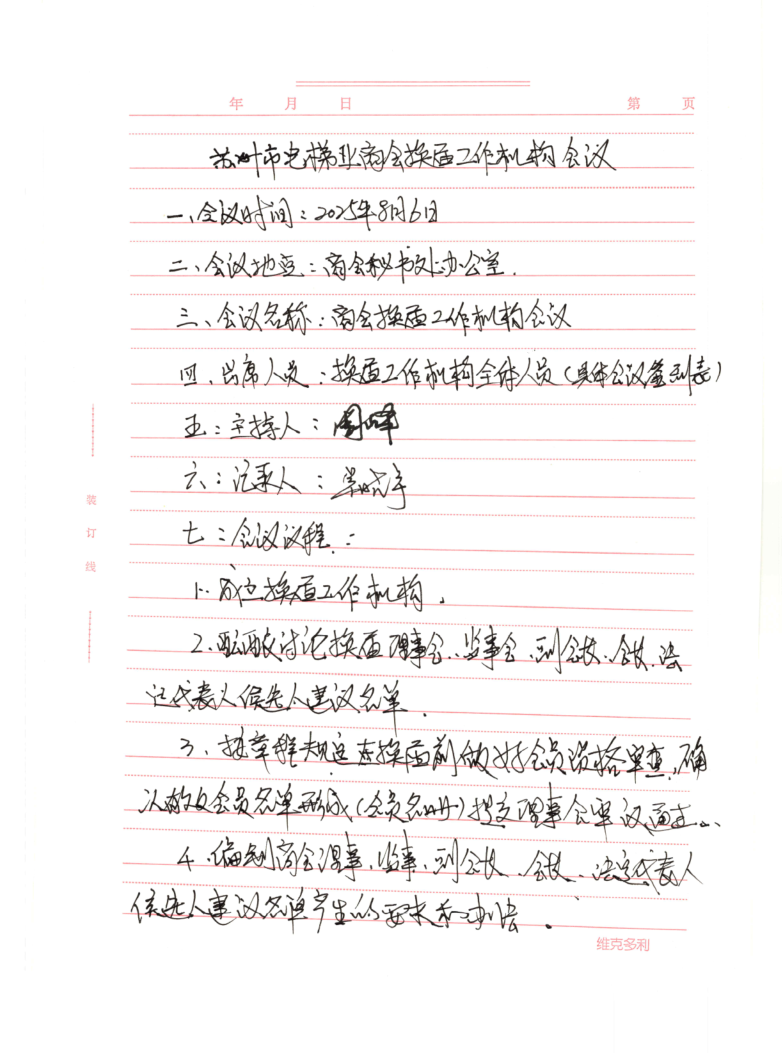 年 月 日 第 页
苏州市电梯业商会换届工作机构会议
一、会议时间：2025年8月6日
二、会议地点：商会秘书处办公室.
三、会议名称：商会换届工作机构会议
四、出席人员：换届工作机构全体人员（具体会议签到表）
五：主持人：周峰
六：记录人：
七：会议议程：
1. 成立换届工作机构.
2. 酝酿讨论换届理事会、监事会、副会长、会长、法
定代表人候选人建议名单.
3、按章程规定在换届前做好会员资格审查，确
认有效会员名单形成（会员名册）提交理事会审议通过。
4、编制商会理事、监事、副会长、会长、法定代表人
候选人建议名单产生的要求和办法.
装
订
线
维克多利